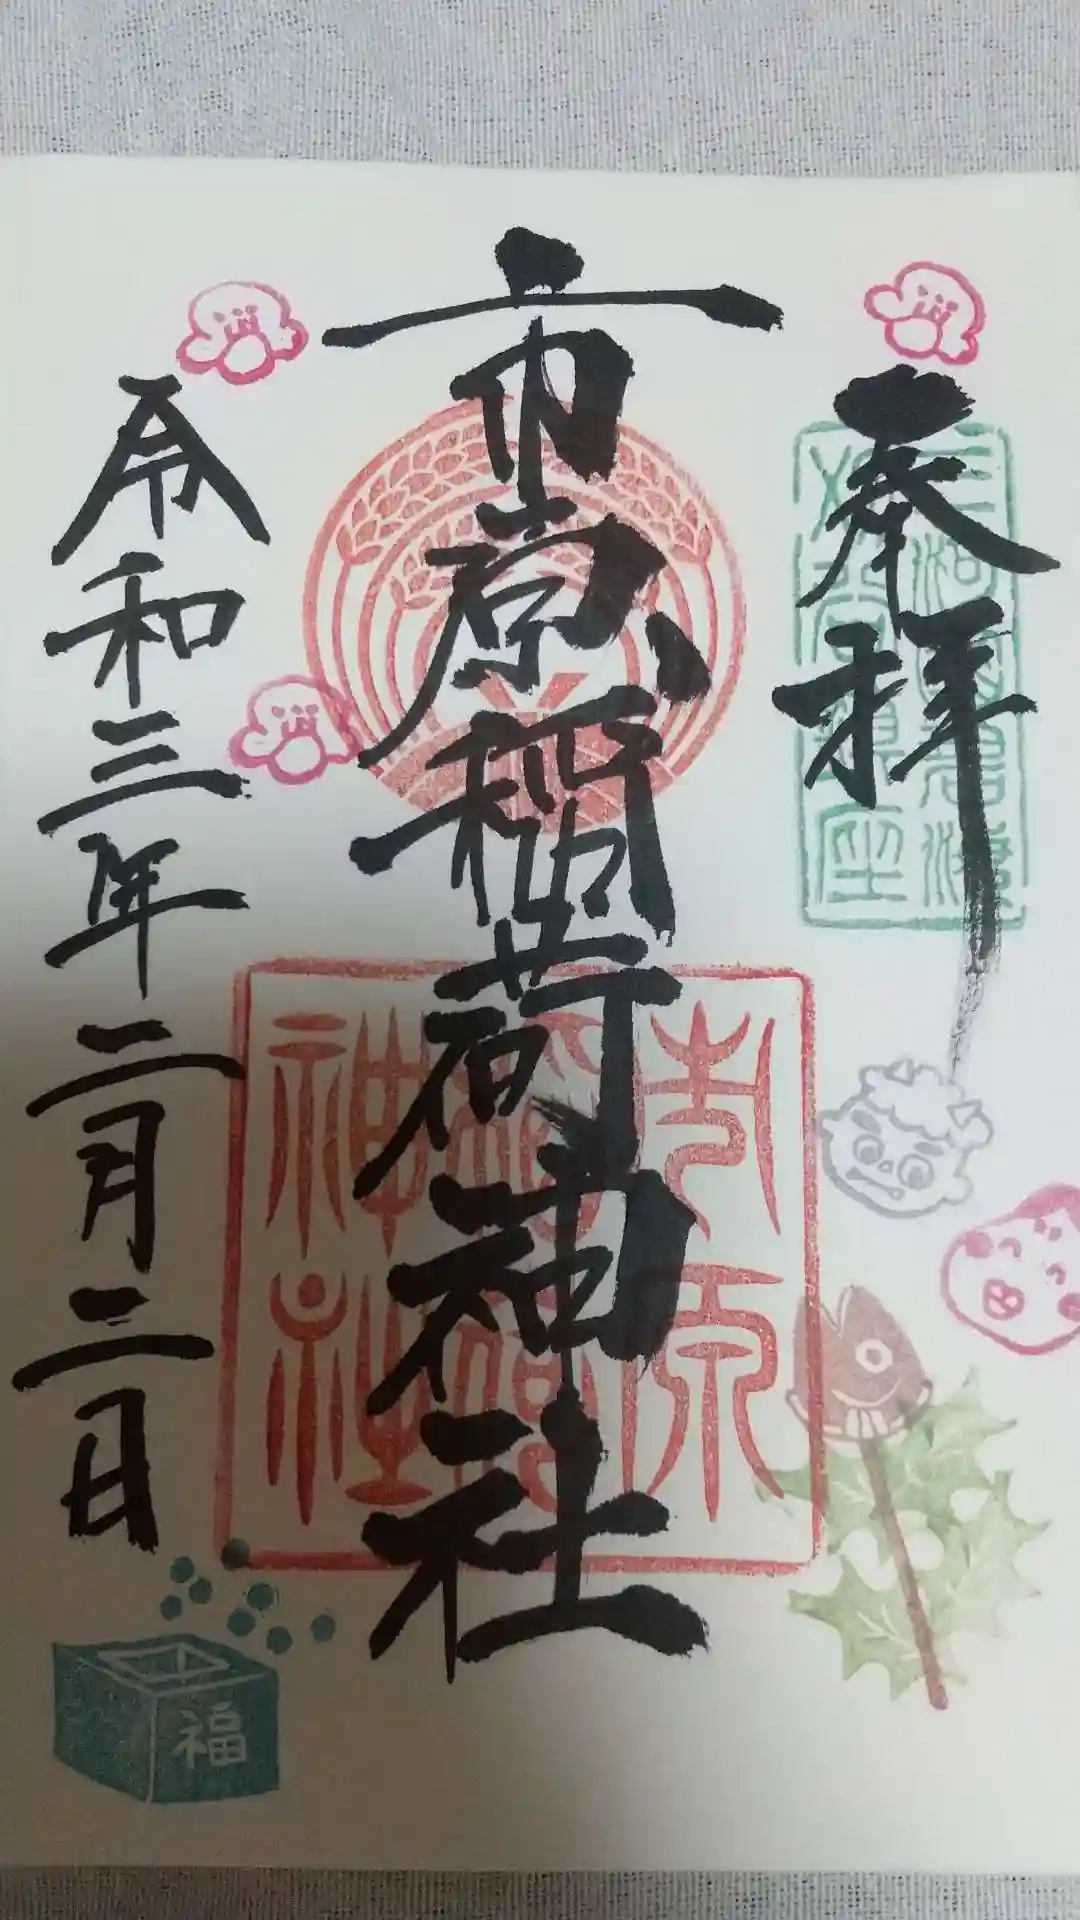 奉拝
市原稲荷神社
市原稲荷神社
令和三年二月二日
福